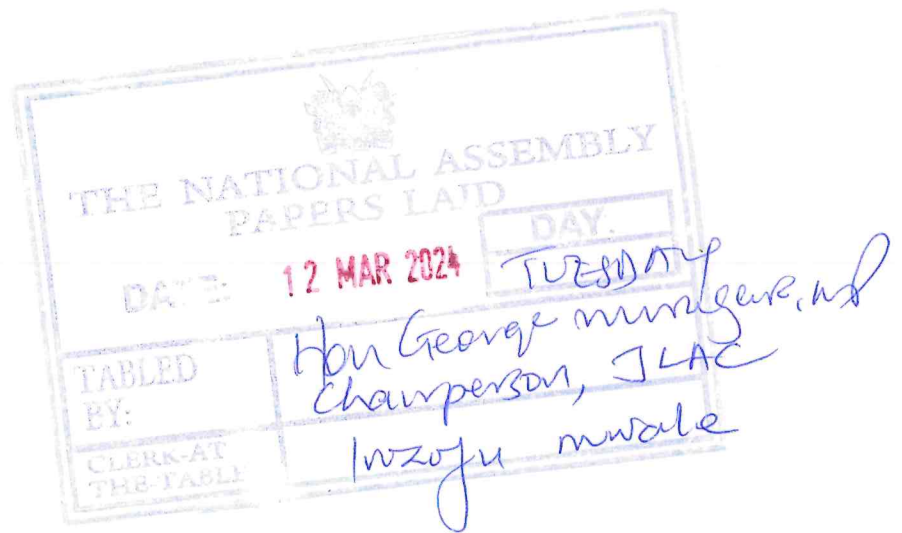 THE NATIONAL ASSEMBLY
PAPERS LAID
DATE: 12 MAR 2024
DAY.
TUESDAY
TABLED BY:
Hon George Murugara, MP
Chairperson, JLAC
CLERK-AT THE-TABLE
Inzofu Mwale